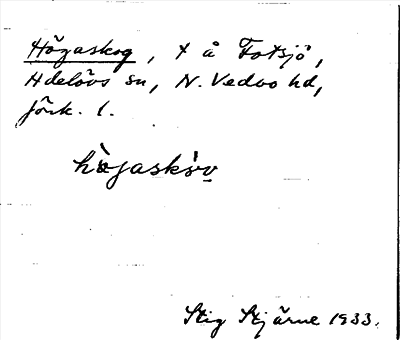 Högaskog, t å Fotsjö,
Hdelövs sn, N. Vedbo hd,
Jönk. l.
hὼgaskṡ̀v
Stig Stjärne 1933.